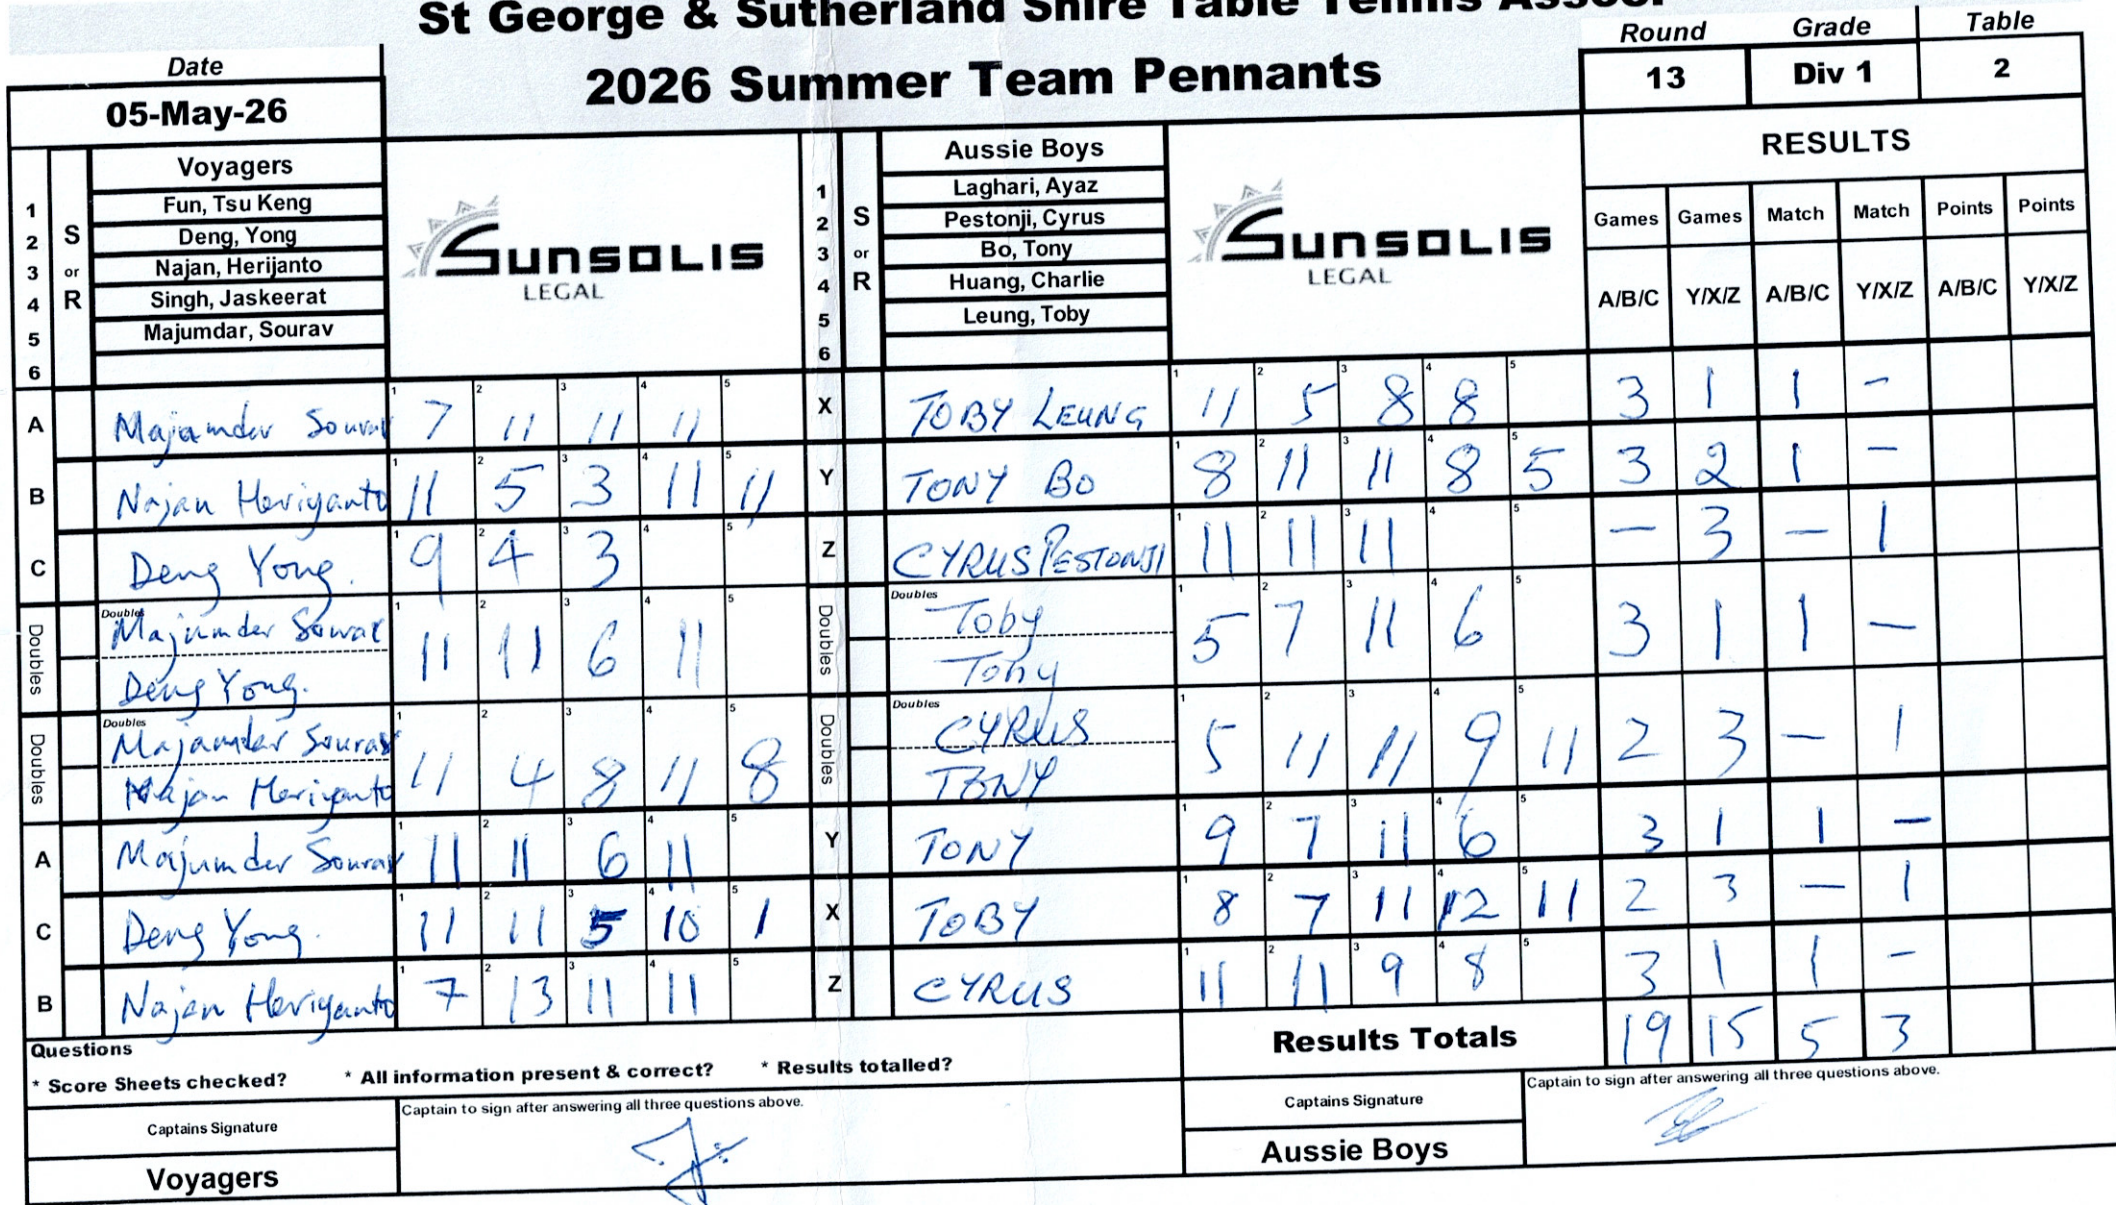 St George & Sutherland Shire Table Tennis Assoc.
2026 Summer Team Pennants
Date
05-May-26
Round Grade Table
13 Div 1 2
Voyagers
1 Fun, Tsu Keng
2 Deng, Yong
3 Najan, Herijanto
4 Singh, Jaskeerat
5 Majumdar, Sourav
6
S or R
SUNSOLIS
LEGAL
Aussie Boys
1 Laghari, Ayaz
2 Pestonji, Cyrus
3 Bo, Tony
4 Huang, Charlie
5 Leung, Toby
6
S or R
SUNSOLIS
LEGAL
RESULTS
Games Games Match Match Points Points
A/B/C Y/X/Z A/B/C Y/X/Z A/B/C Y/X/Z
1 2 3 4 5 1 2 3 4 5
A Majamder Sourav 7 11 11 11 X TOBY LEUNG 11 5 8 8 3 1 1 -
1 2 3 4 5 1 2 3 4 5
B Najan Heriyanto 11 5 3 11 11 Y TONY BO 8 11 11 8 5 3 2 1 -
1 2 3 4 5 1 2 3 4 5
C Deng Yong. 9 4 3 Z CYRUS PESTONJI 11 11 11 - 3 - 1
1 2 3 4 5 1 2 3 4 5
Doubles Doubles Majumder Sourav Deng Yong. 11 11 6 11 Doubles Doubles Toby Tony 5 7 11 6 3 1 1 -
1 2 3 4 5 1 2 3 4 5
Doubles Doubles Majamder Sourav Najan Heriyanto 11 4 8 11 8 Doubles Doubles CYRUS TONY 5 11 11 9 11 2 3 - 1
1 2 3 4 5 1 2 3 4 5
A Majumder Sourav 11 11 6 11 Y TONY 9 7 11 6 3 1 1 -
1 2 3 4 5 1 2 3 4 5
C Deng Yong. 11 11 5 10 1 X TOBY 8 7 11 12 11 2 3 - 1
1 2 3 4 5 1 2 3 4 5
B Najan Heriyanto 7 13 11 11 Z CYRUS 11 11 9 8 3 1 1 -
Results Totals 19 15 5 3
Questions
* Score Sheets checked? * All information present & correct? * Results totalled?
Captains Signature
Captain to sign after answering all three questions above.
Voyagers
Captains Signature
Captain to sign after answering all three questions above.
Aussie Boys